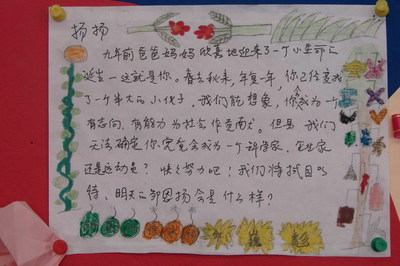 扬扬
九年前爸爸妈妈欣喜地迎来了一个小生命
诞生一这就是你。春去秋来,年复一年,你已经变成
了一个半大的小伙子,我们能想象,你成为一个
有志向、有能力为社会作贡献。但是我们
无法确定你究竟会成为一个科学家、企业家
还是运动员?快快努力吧!我们将拭目以
待,明天的邹恩扬会是什么样?